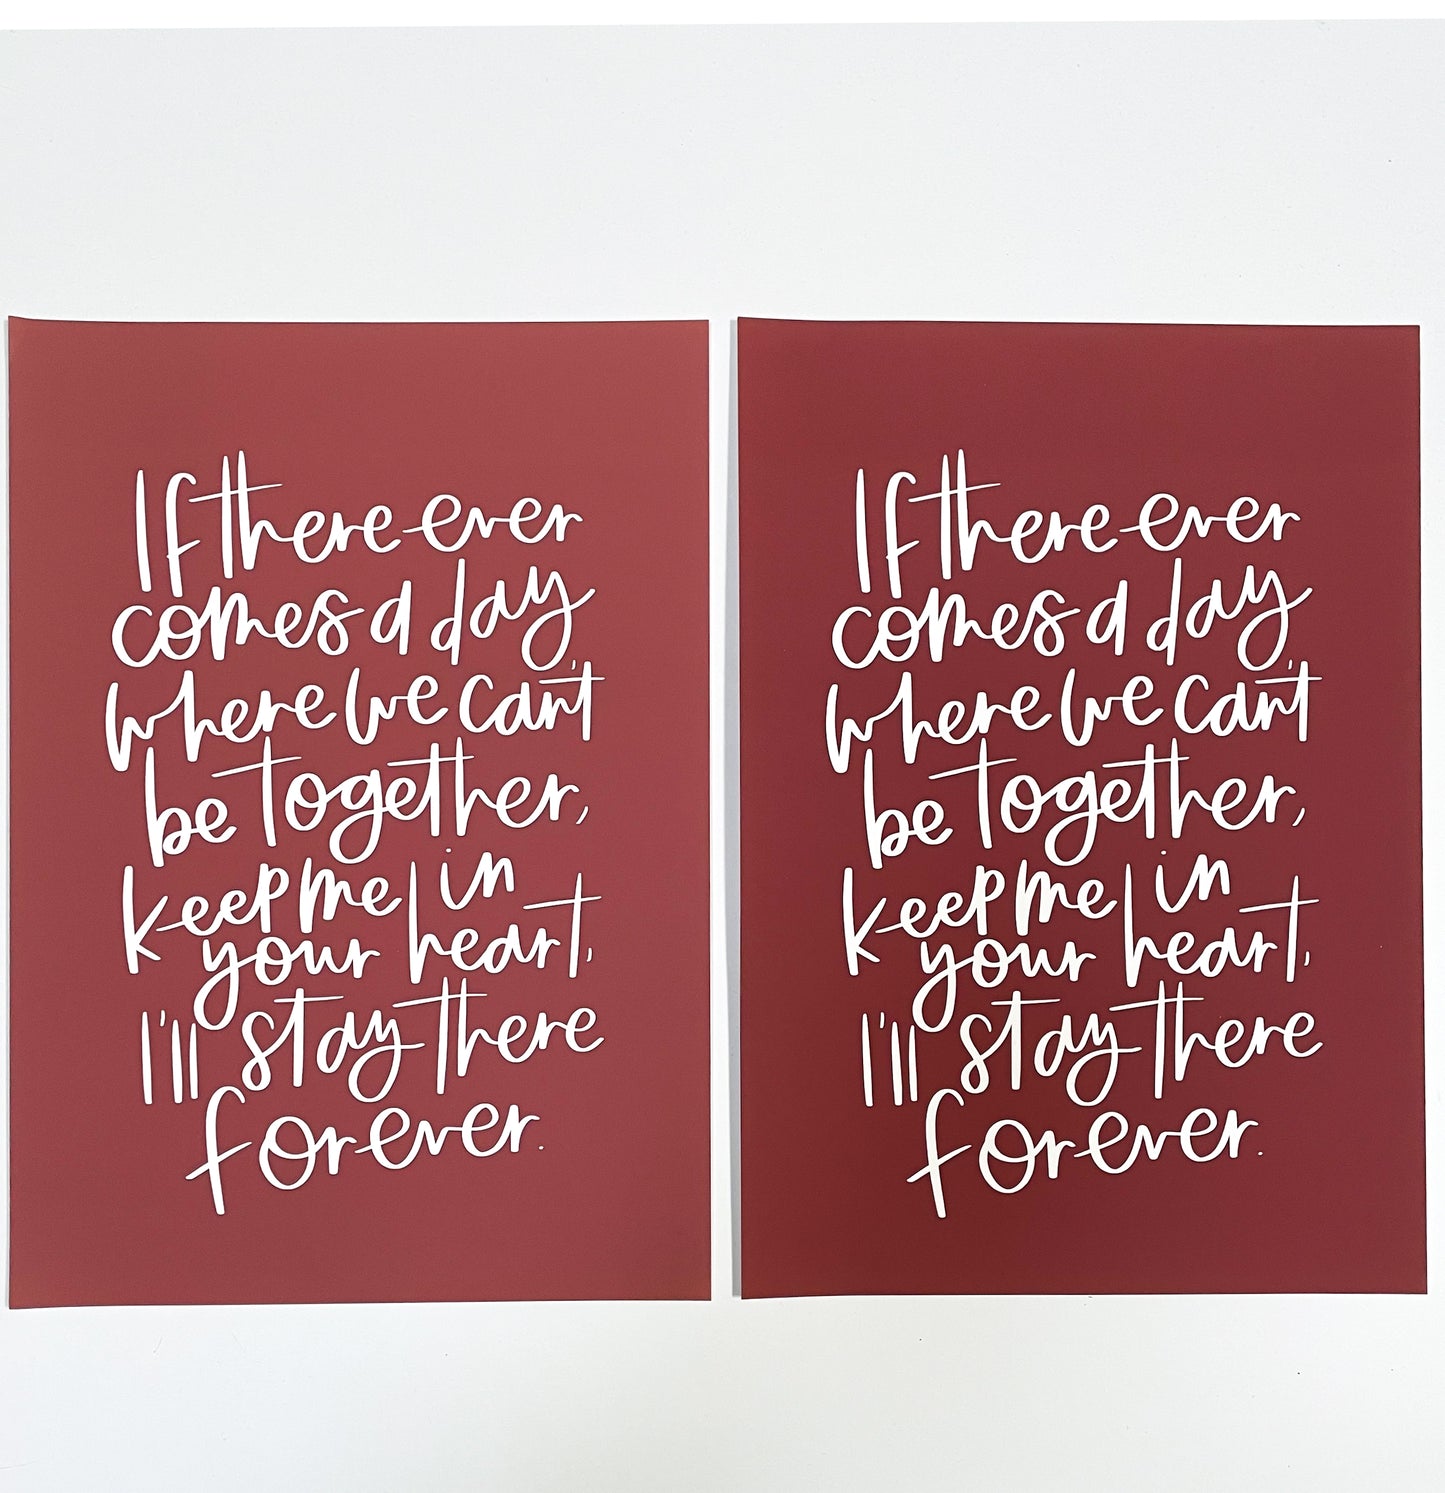 If there ever
comes a day,
where we can't
be together,
keep me in
your heart,
I'll stay there
forever.
If there ever
comes a day,
where we can't
be together,
keep me in
your heart,
I'll stay there
forever.